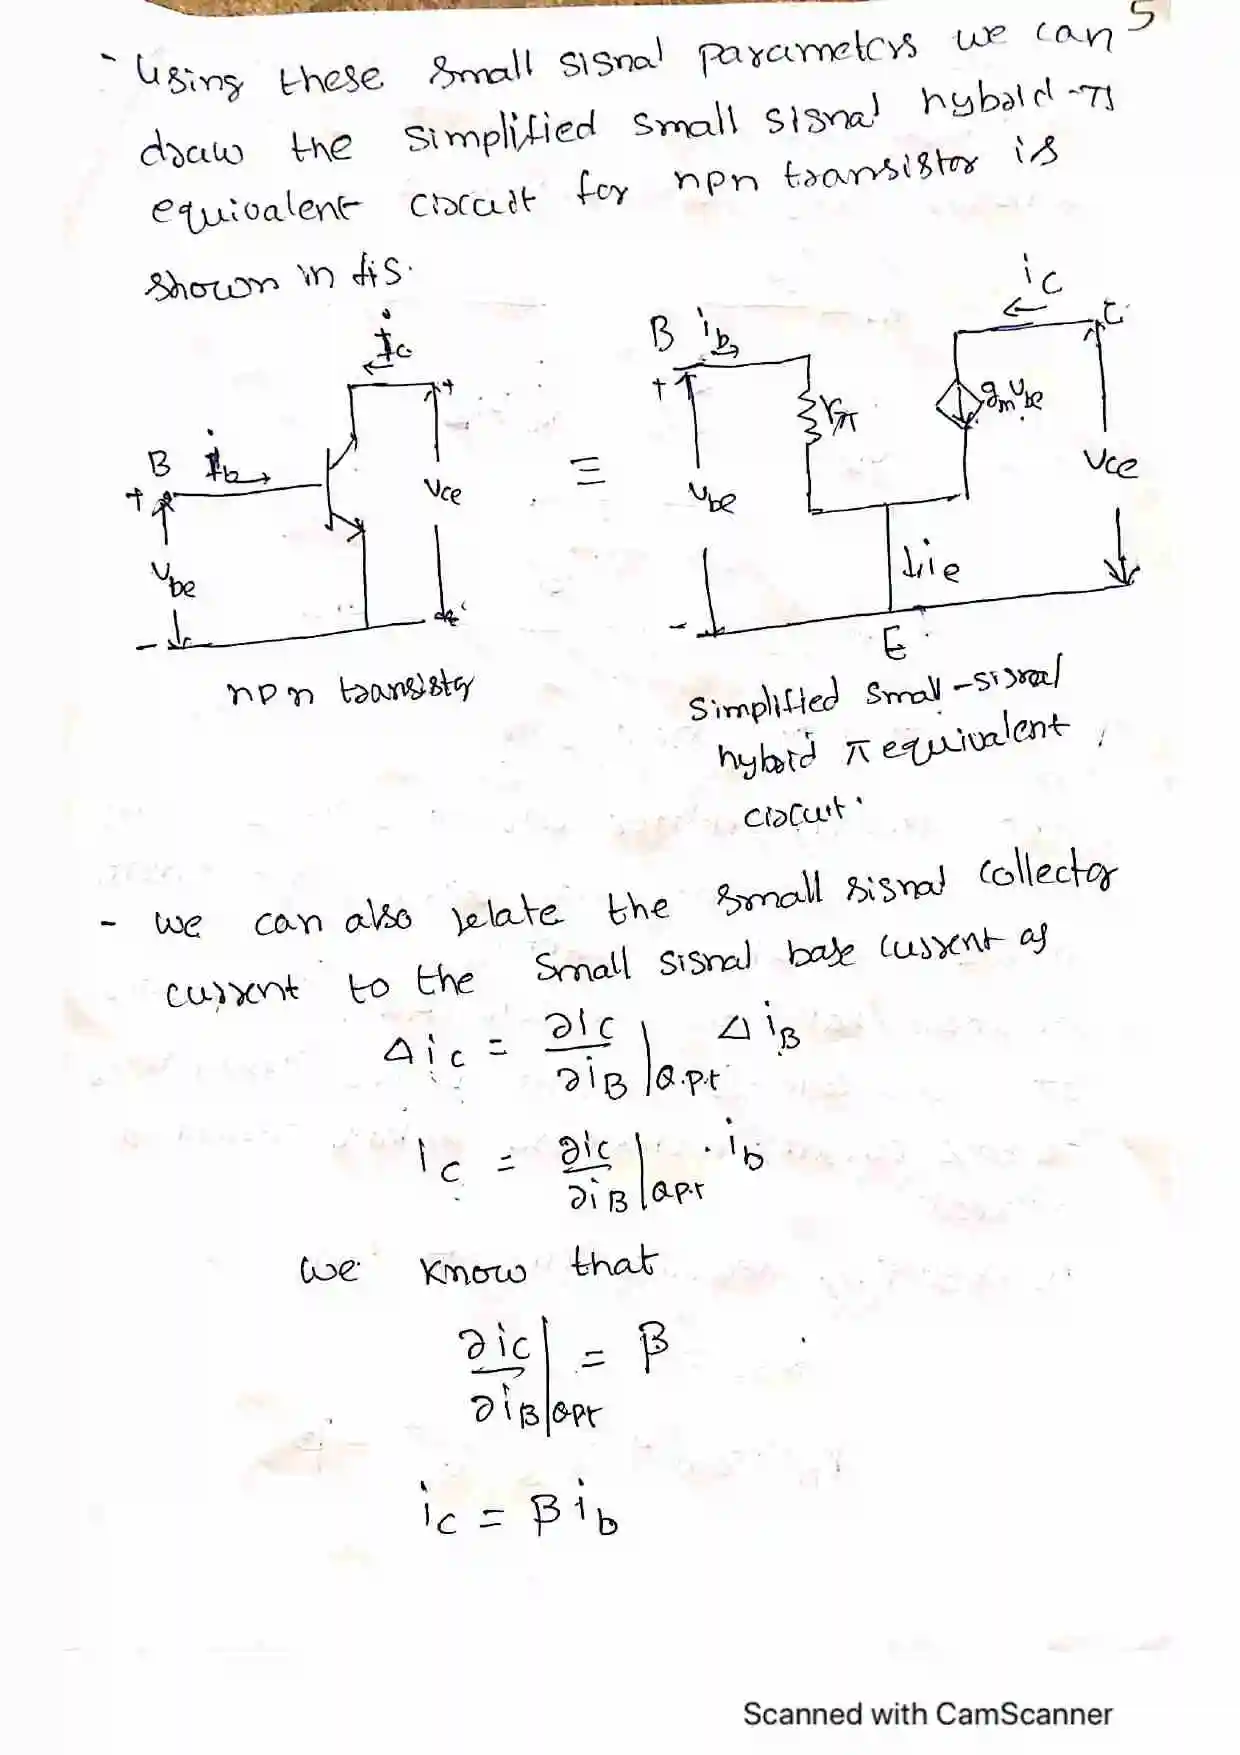 5
- Using these small signal parameters we can
draw the simplified small signal hybrid-π
equivalent circuit for npn transistor is
shown in fig.
ic
B ib
+ +
vce
vbe
-
npn transistor
≡
ic
B ib C
+
rπ gmvbe
vbe vce
↓ie
-
E
simplified small-signal
hybrid π equivalent
circuit.
- we can also relate the small signal collector
current to the small signal base current as
Δic = ∂ic/∂iB |Q.pt ΔiB
ic = ∂ic/∂iB |Qpt . ib
we know that
∂ic/∂iB |Qpt = β
ic = β ib
Scanned with CamScanner